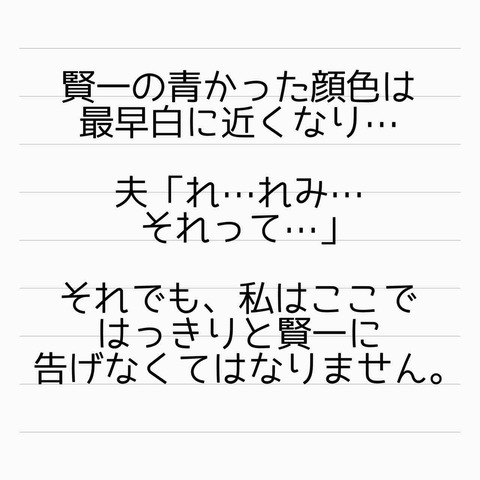 賢一の青かった顔色は
最早白に近くなり…
夫「れ…れみ…
それって…」
それでも、私はここで
はっきりと賢一に
告げなくてはなりません。